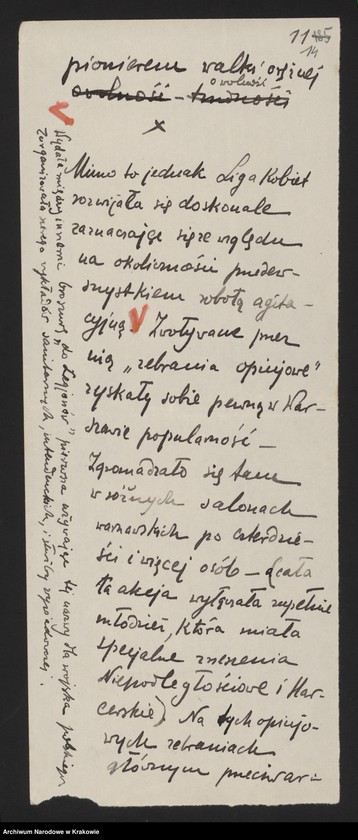 11 185
14
pionierem walki orężnej
o wolność
owolność –
x
Mimo to jednak Liga Kobiet
rozwijała się doskonale
zaznaczając się ze względu
na okoliczności przedew-
szystkiem robotą agita-
cyjną V Zwoływane przez
nią „zebrania opinjowe"
zyskały sobie pewną w War-
szawie popularność –
Zgromadzało się tam
w różnych salonach
warszawskich po czterdzie-
ści i więcej osób – (cała
ta akcja wyłączała zupełnie
młodzież, która miała
specjalne zrzeszenia
Niepodległościowe i Har-
cerskie). Na tych opinjo-
wych zebraniach
głównym przeciwar-
V Wydała między innemi broszurę „do Legjonów" pierwsza używając tej nazwy dla wojska polskiego
zorganizowała szereg wykładów sanitarnych, intendenckich, i służby wywiadowczej.
Archiwum Narodowe w Krakowie